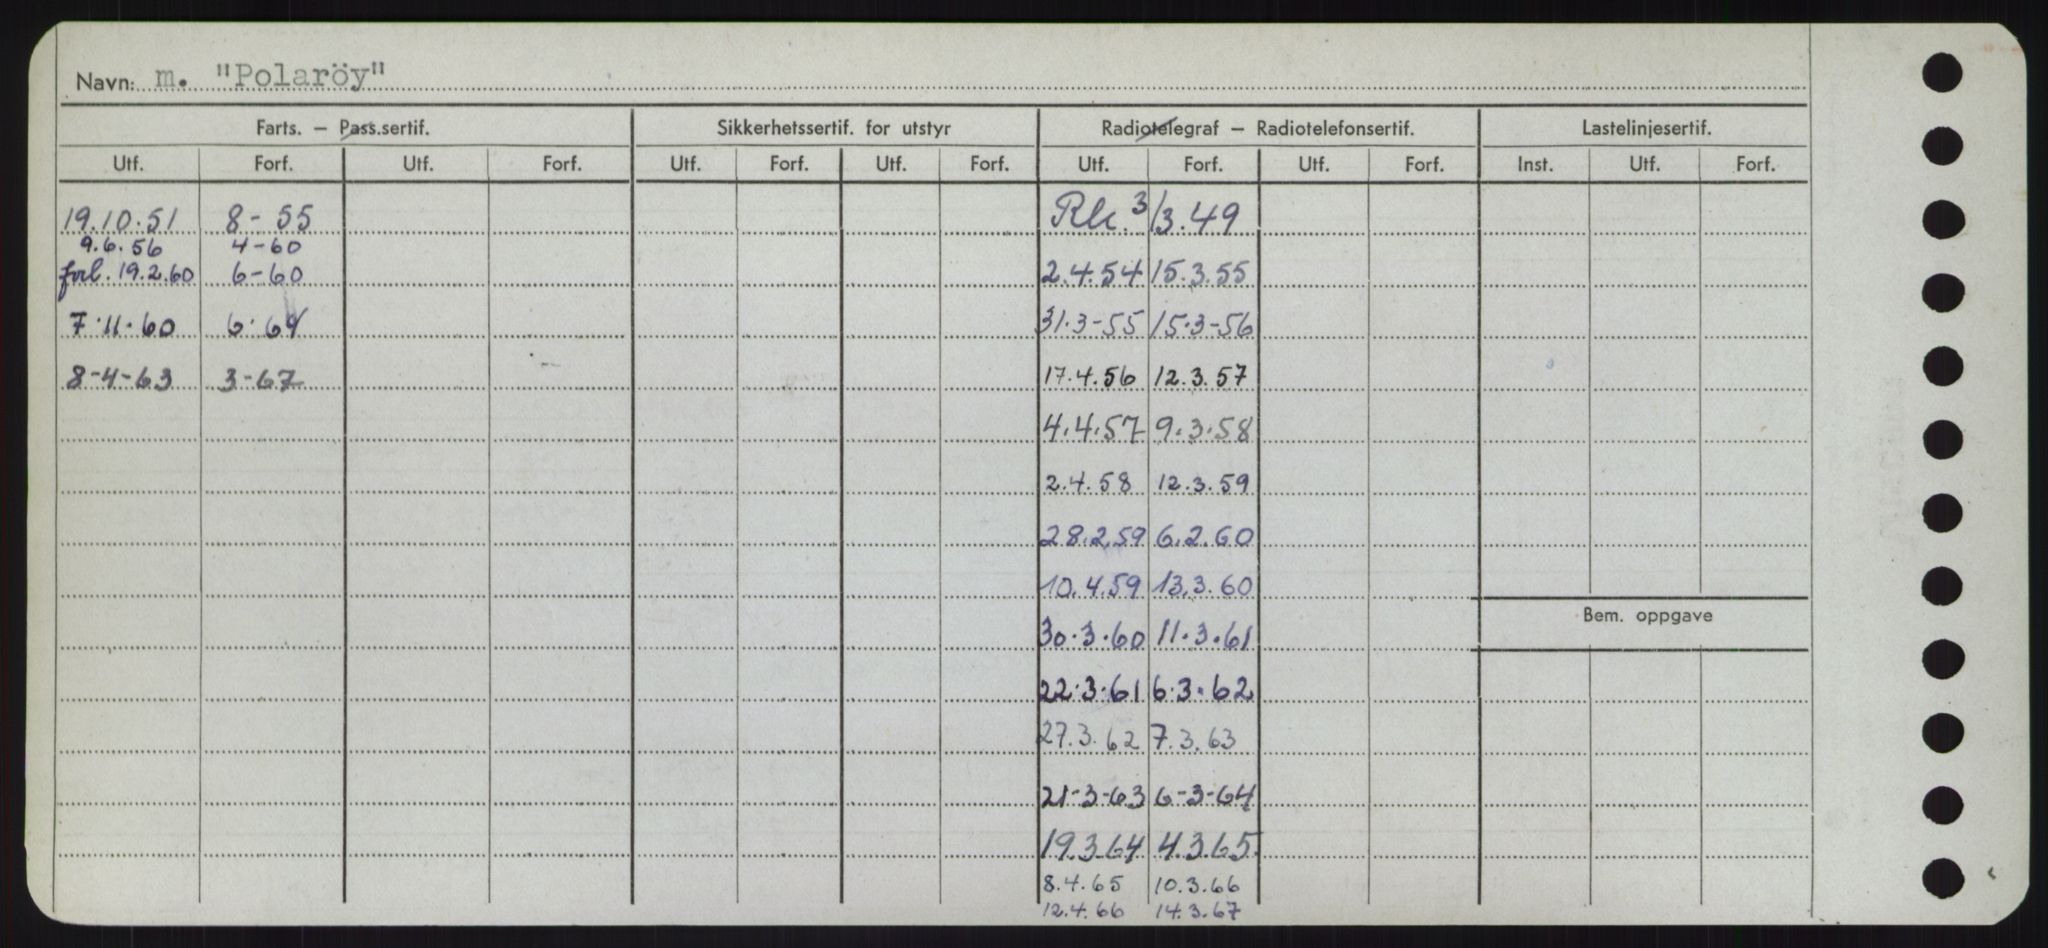 Navn: m. "Polaröy"
Farts. – Pass.sertif. Sikkerhetssertif. for utstyr Radiotelegraf – Radiotelefonsertif. Lastelinjesertif.
Utf. Forf. Utf. Forf. Utf. Forf. Utf. Forf. Utf. Forf. Utf. Forf. Inst. Utf. Forf.
19.10.51 8- 55 Rk. 3/3.49
9.6.56 4-60
forl. 19.2.60 6-60 2.4.54 15.3.55
7.11.60 6.64 31.3-55 15.3-56
8-4-63 3-67 17.4.56 12.3.57
4.4.57 9.3.58
2.4.58 12.3.59
28.2.59 6.2.60
10.4.59 13.3.60
Bem. oppgave
30.3.60 11.3.61
22.3.61 6.3.62
27.3.62 7.3.63
21-3-63 6-3-64
19.3.64 4.3.65.
8.4.65 10.3.66
12.4.66 14.3.67